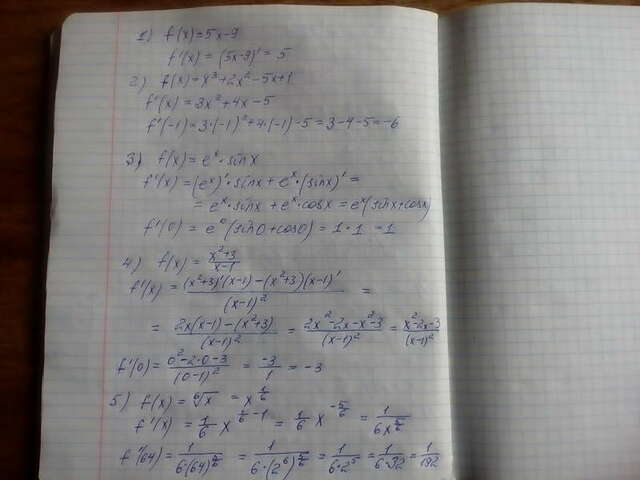 1) f(x)=5x-9
f'(x) = (5x-9)' = 5
2) f(x)=x³+2x²-5x+1
f'(x) = 3x²+4x-5
f'(-1)=3·(-1)²+4·(-1)-5=3-4-5=-6
3) f(x)=eˣ·sinx
f'(x)=(eˣ)'·sinx+eˣ·(sinx)'=
=eˣ·sinx+eˣ·cosx=eˣ(sinx+cosx)
f'(0)=e⁰(sin0+cos0)=1·1=1
4) f(x)=(x²+3)/(x-1)
f'(x)=((x²+3)'(x-1)-(x²+3)(x-1)')/(x-1)² =
= (2x(x-1)-(x²+3))/(x-1)² = (2x²-2x-x²-3)/(x-1)² = (x²-2x-3)/(x-1)²
f'(0)=(0²-2·0-3)/(0-1)² = -3/1 = -3
5) f(x)=⁶√x = x^(1/6)
f'(x)=1/6 x^(1/6-1) = 1/6 x^(-5/6) = 1/(6x^(5/6))
f'(64)=1/(6·(64)^(5/6)) = 1/(6·(2⁶)^(5/6)) = 1/(6·2⁵) = 1/(6·32) = 1/192